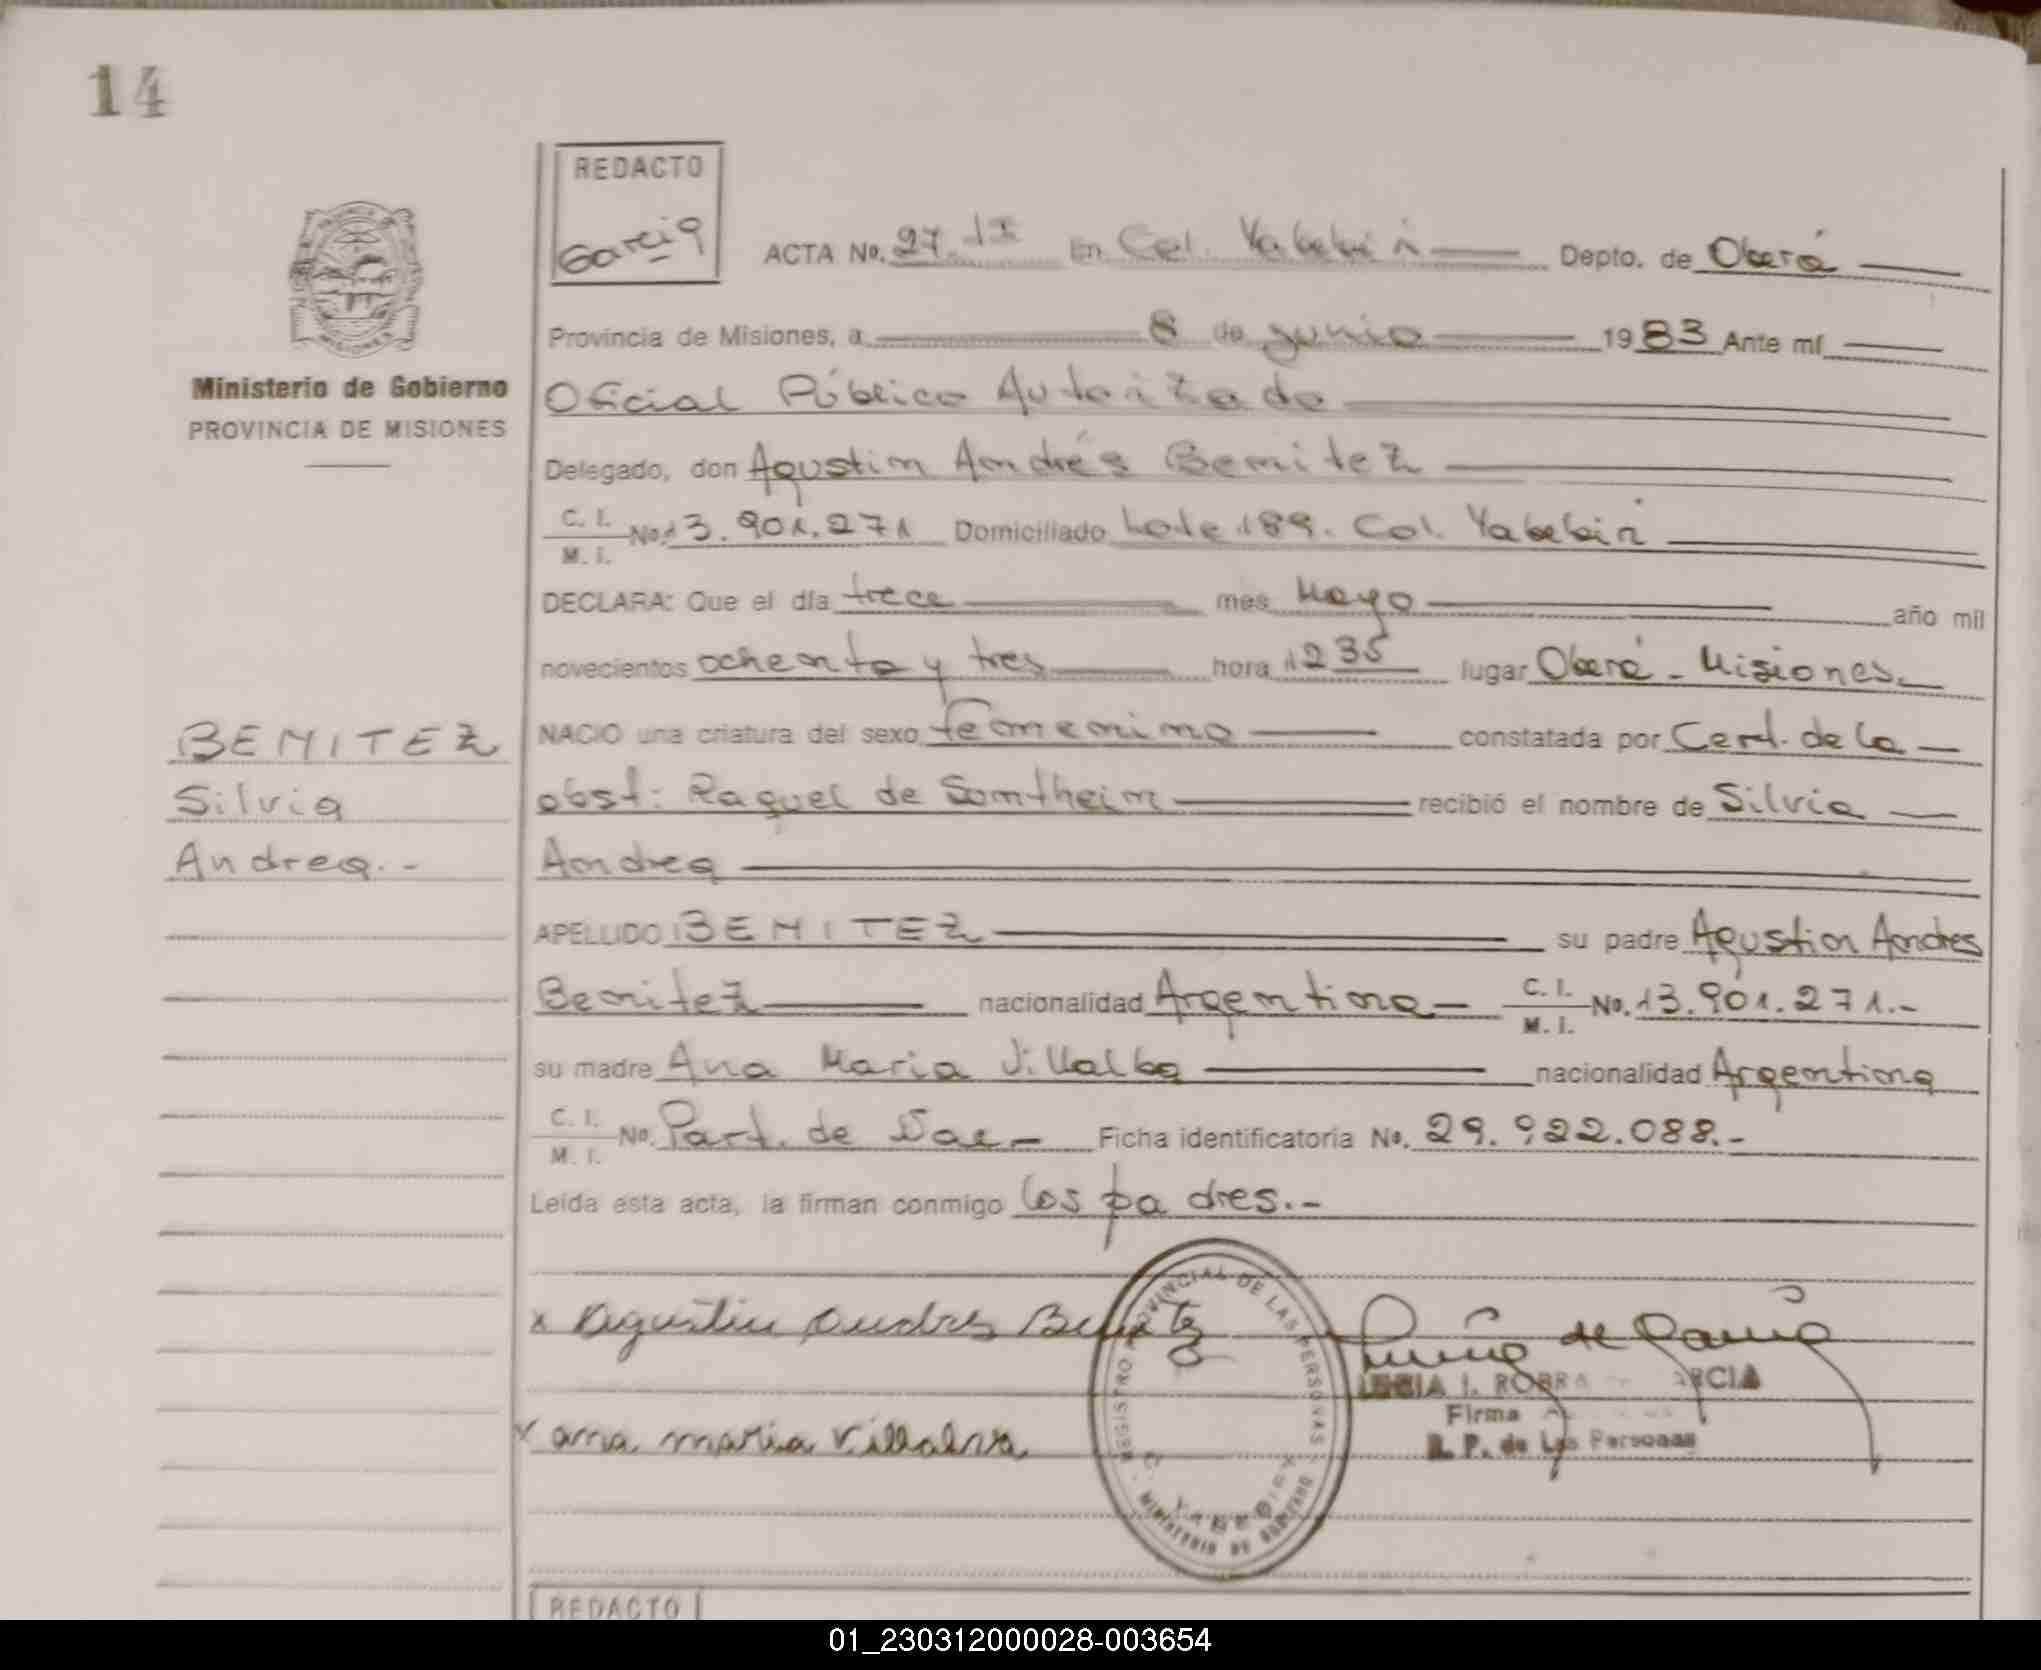 14
REDACTO
Garcia
ACTA No. 27 En Col. Yabebiri Depto. de Oberá
Provincia de Misiones, a 8 de junio 1983 Ante mí
Ministerio de Gobierno
PROVINCIA DE MISIONES
Oficial Público Autorizado
Delegado, don Agustin Andrés Benitez
C. I. M. I. No. 13.901.271 Domiciliado Lote 189. Col. Yabebiri
DECLARA: Que el día trece mes Mayo año mil
novecientos ochenta y tres hora 1235 lugar Oberá - Misiones.
BENITEZ
Silvia
Andrea.-
NACIO una criatura del sexo femenino constatada por Cert. de la
obst: Raquel de Somtheim recibió el nombre de Silvia
Andrea
APELLIDO BENITEZ su padre Agustin Andres
Benitez nacionalidad Argentina C. I. M. I. No. 13.901.271.-
su madre Ana Maria Villalba nacionalidad Argentina
C. I. M. I. No. Part. de Nac.- Ficha identificatoria No. 29.922.088.-
Leída esta acta, la firman conmigo los padres.-
x Agustin Andres Benitez
x ana maria Villalva
REGISTRO PROVINCIAL DE LAS PERSONAS
MINISTERIO DE GOBIERNO
de Garcia
I. GARCIA
Firma
R. P. de Las Personas
REDACTO
01_230312000028-003654